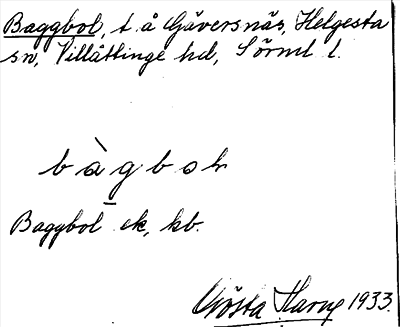 Baggbol, t. å Gäversnäs, Helgesta
sn, Villåttinge hd, Sörml. l.
bàgbol
Baggbol ek, kb.
Gösta Harne 1933.